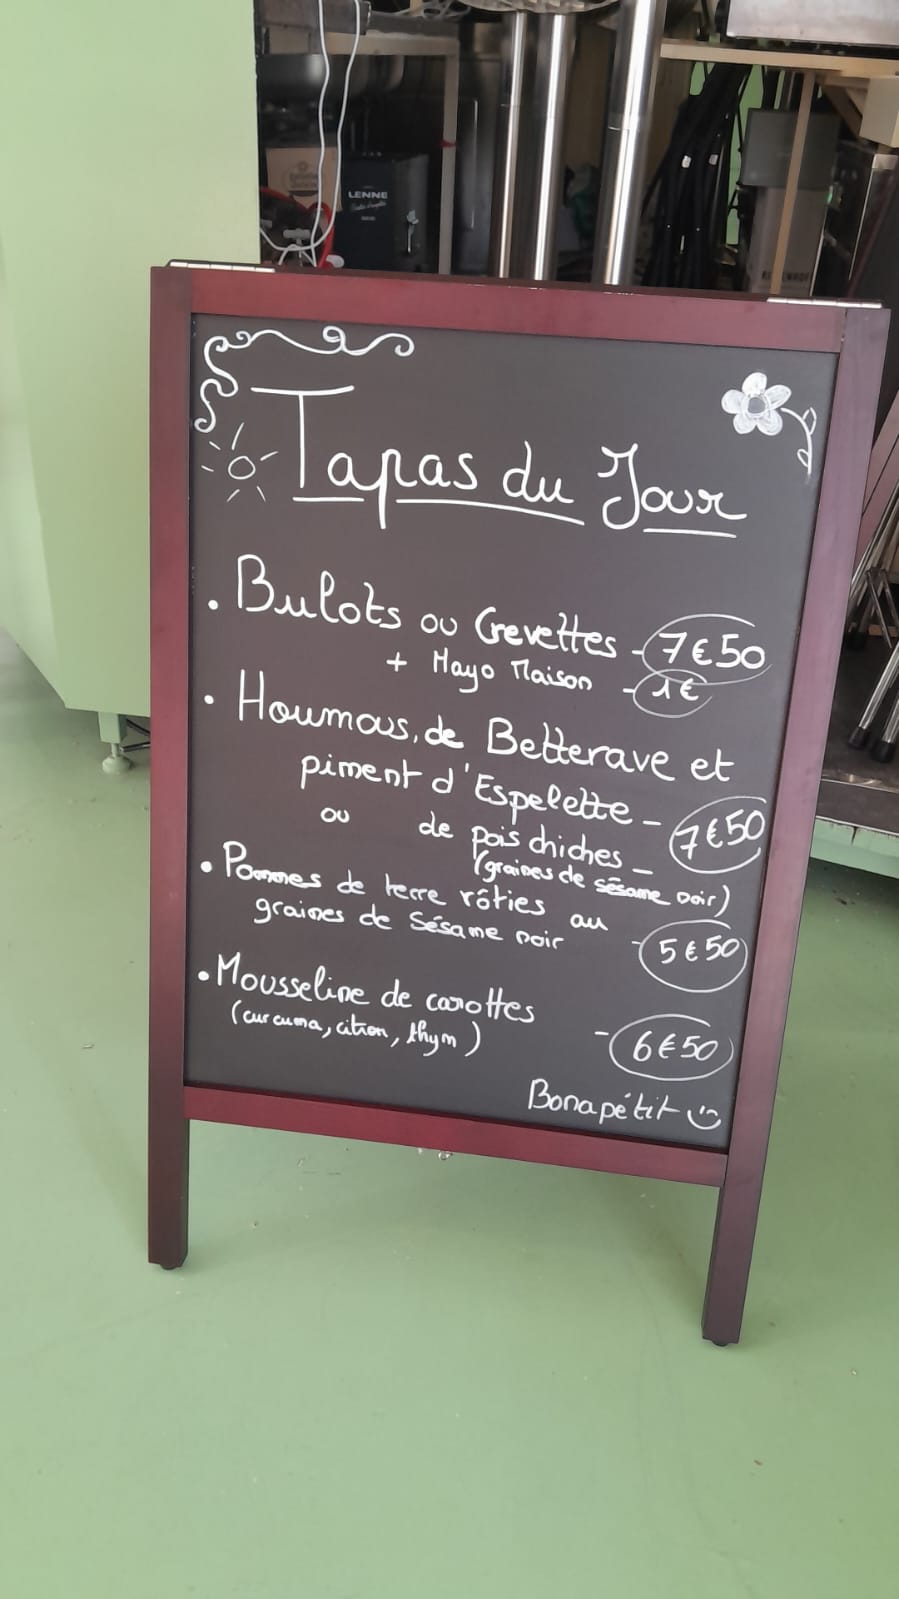 LENNE
Tapas du Jour
. Bulots ou Crevettes - 7€50
+ Mayo Maison - 1€
. Houmous, de Betterave et
piment d'Espelette - 7€50
ou de pois chiches -
(graines de sésame noir)
. Pommes de terre rôties au
graines de Sésame noir - 5€50
. Mousseline de carottes
(curcuma, citron, thym) - 6€50
Bonapétit